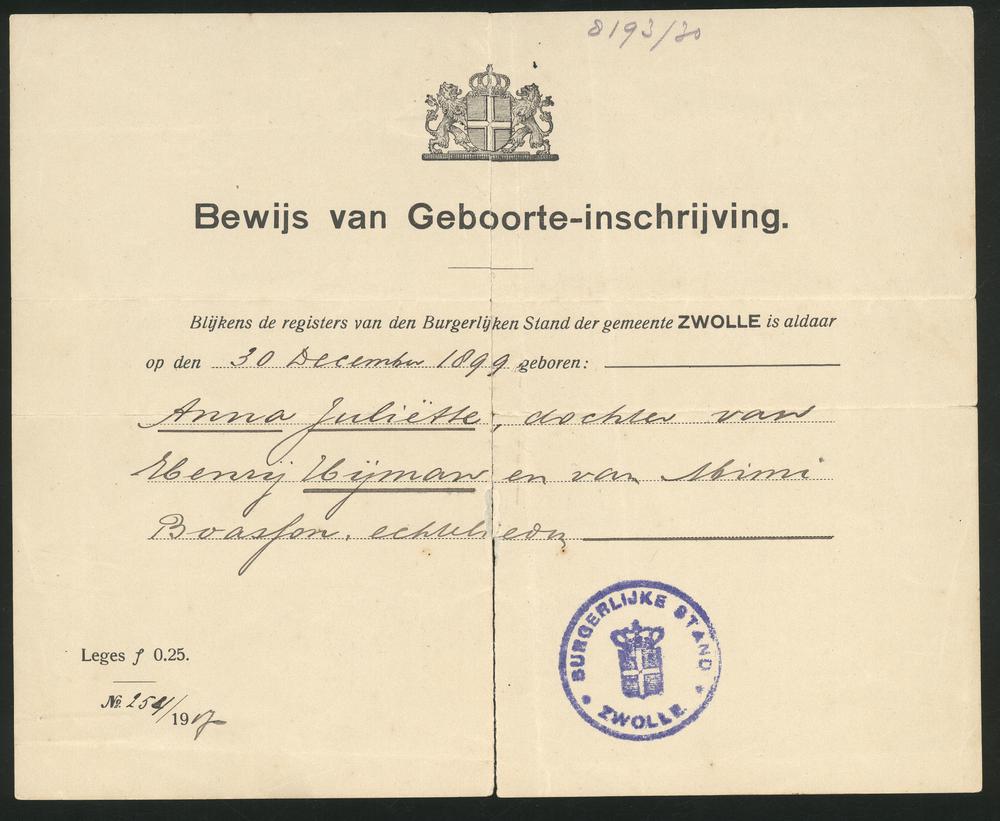 8193/30
Bewijs van Geboorte-inschrijving.
Blijkens de registers van den Burgerlijken Stand der gemeente ZWOLLE is aldaar
op den 30 December 1899 geboren:
Anna Juliëtte, dochter van
Henrij Hijman en van Mimi
Boasson, echtelieden
BURGERLIJKE STAND
ZWOLLE
Leges f 0.25.
№ 254/1917